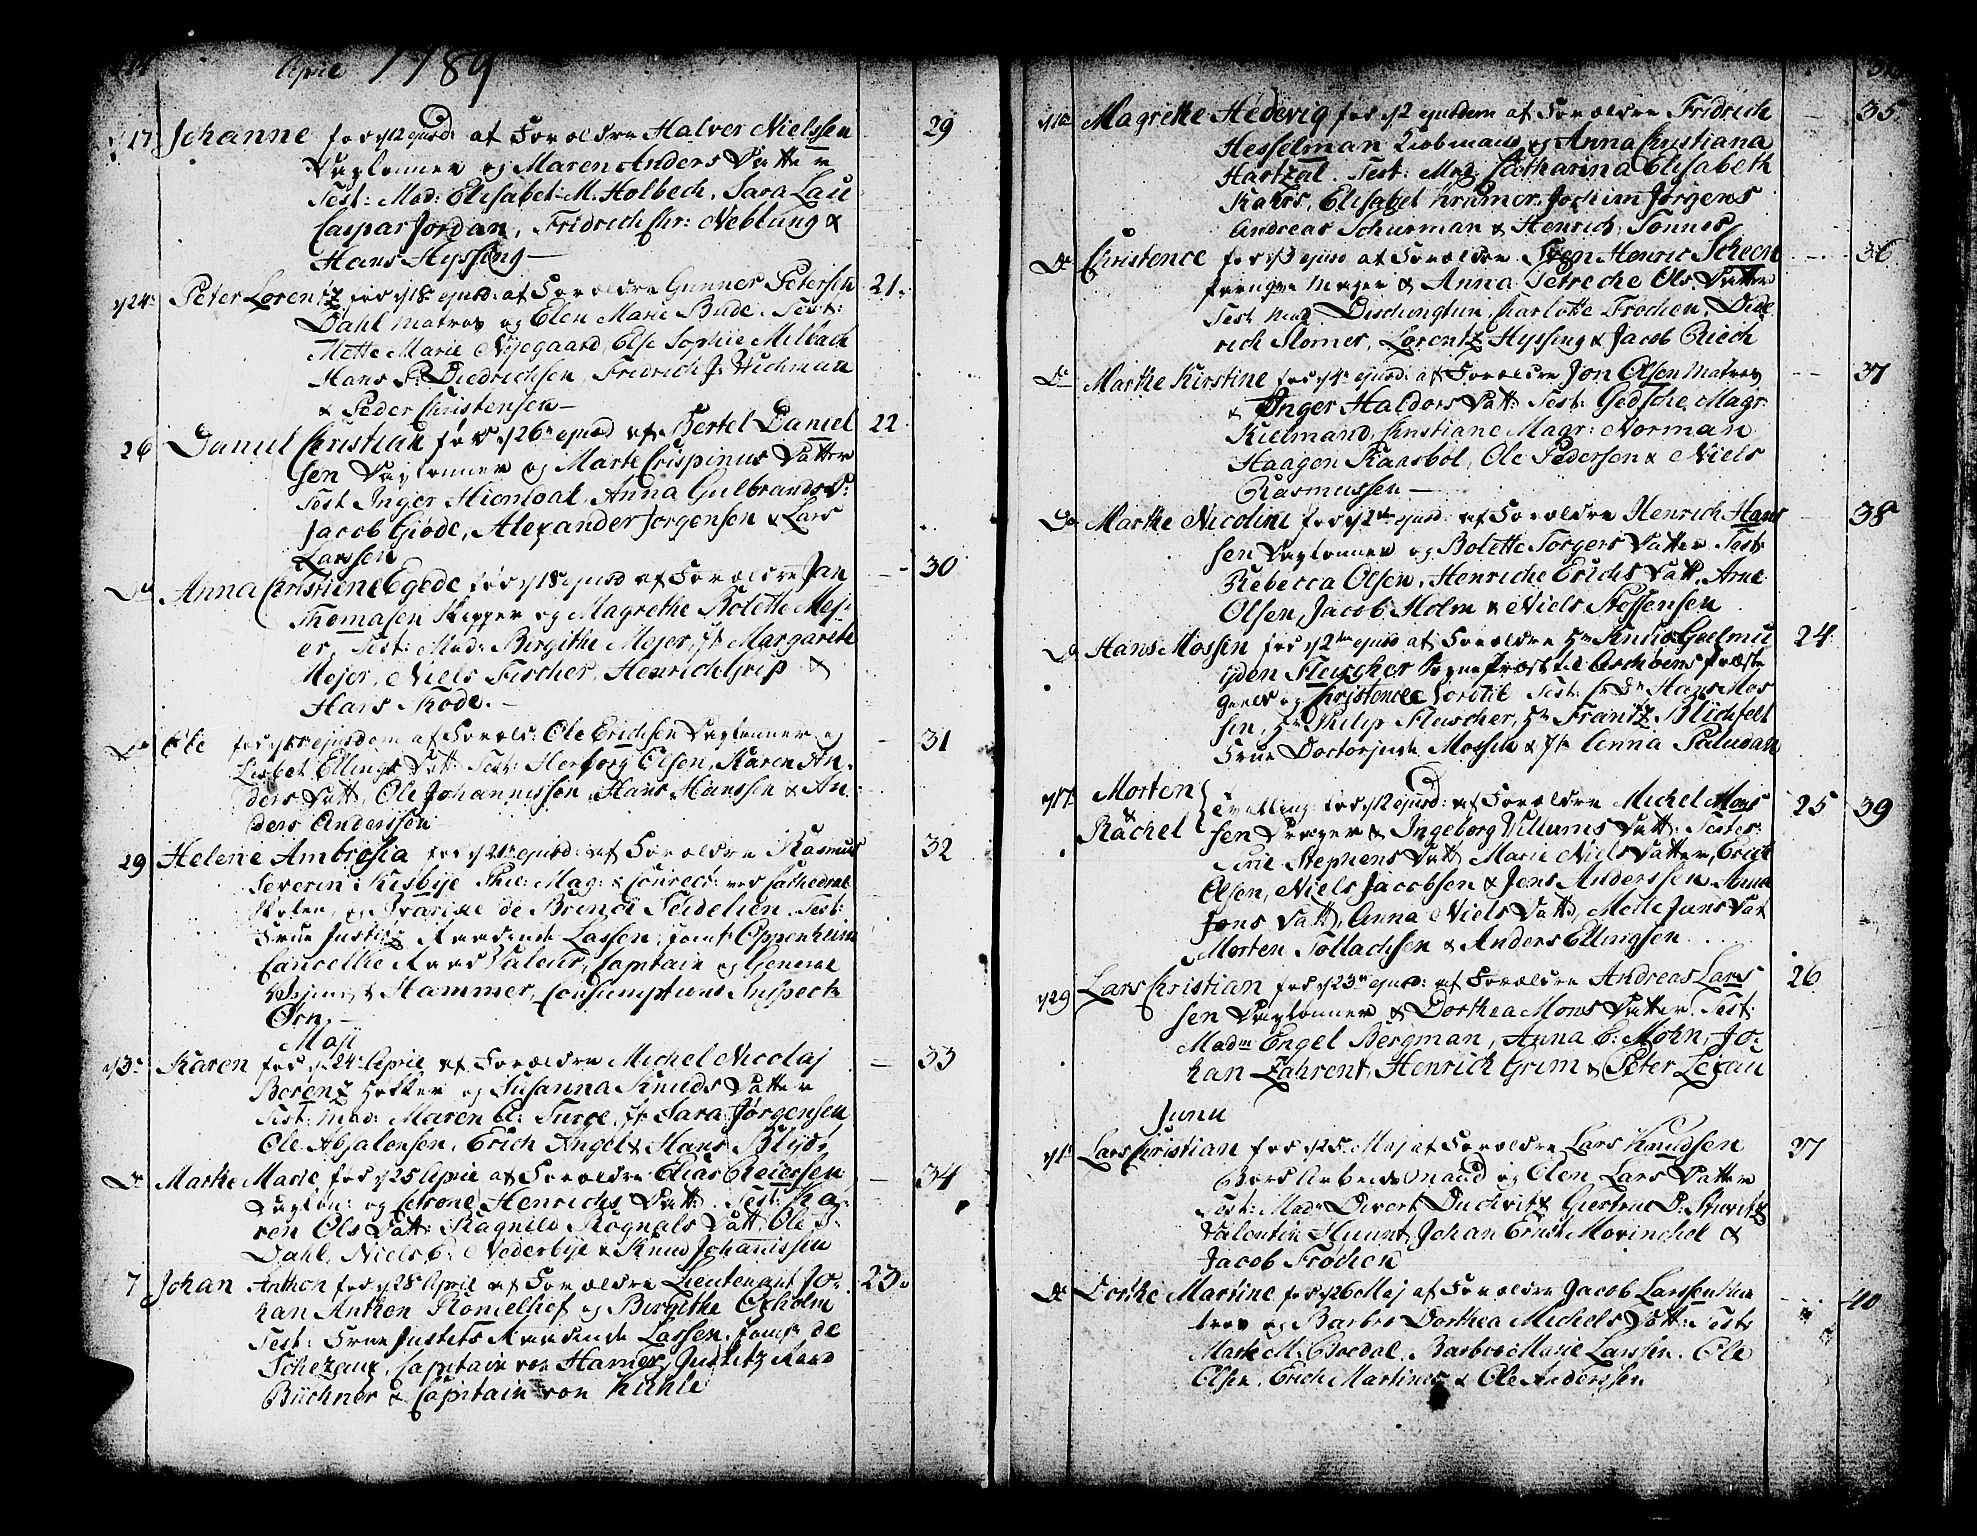 April 1789
d 17 Johanne fød d 12 ejusd: af Forældre Halver Nielssen 29
Daglønner og Maren Anders Datter
Test: Mad: Elisabet M. Holbech, Sara Lau
Caspar Jordan, Fridrich Chr: Neblung &
Hans Hyssing —
d 24 Peter Lorentz fød d 18 ejusd: af Forældre Gunner Petersen 21.
Dahl Matros og Elen Marie Bude. Test:
Mette Marie Nyegaard, Else Sophie Milbach
Hans P. Diedrichsen, Fridrich J. Wichman
& Peder Christensen —
26 Daniel Christian fød d 26 ejusd af Bertel Daniel 22
sen Daglønner og Marte Crispinus Datter
Test Inger Hiordal, Anna Gulbrands D:
Jacob Giøde, Alexander Jørgensen & Lars
Larssen
Do Anna Christine Egede fød d 18 ejusd af Forældre Jan 30
Thomasen Skipper og Magrethe Bolette Mej
er. Test: Mad: Birgithe Mejer, Jf. Margarethe
Mejer, Niels Fischer, Henrich Grip &
Hans Rode. —
Do Ole fød ejusdem af Foræld: Ole Erichsen Dagløner og 31
Lisbet Ellings Datt: Test: Herborg Olsen, Karen An-
ders Datt, Ole Johannissen, Hans Hanssen & An-
ders Anderssen
29 Helene Ambrosia fød d 21 ejusd: af Forældre Rasmus 32
Severin Kisbÿe Phil: Mag: & Conrect: ved Cathedral
Skolen, og de Brinck Seidelien. Test:
Frue Justitz Raadinde Lassen, Jomf: Oppenheim
Cancellie Raad Valeur, Capitain og General
Hammer, Consumptions Inspect:
Ørn. —
Maji
d 3 Karen fød d 24 April af Forældre Michel Nicolaj 33
Berentz Høcker og Susanna Knuds Datter
Test: Mad: Maren El: Surge, Jf. Sara Jørgensen
Ole Absalonsen, Erich Angel & Hans Blÿdt
Do Marthe Marie fød d 25 April af Forældre Elias Reierssen 34
Dagløn: og Petrone Henrichs Datt: Test: Ka-
ren Ols Datt: Ragnild Rognals Datt, Ole P.
Dahl, Niels C: Nederbye & Knud Johanissen
7 Johan Anthon fød d 28 April af Forældre Lieutenant Jo- 23.
han Anthon Romelhof og Birgithe Oxholm
Test: Frue Justits Raadinde Lassen, Jomf: de
Schezaux, Capitain von Hamer, Justitz Raad
Büchner & Capitain von Kühle
d 10 Magrethe Hedevig fød d 2 ejusdem af Forældre Fridrich 35
Hesselman Kiøbmand og Anna Christiana
Hartzal. Test: Mad: Catharina Elisabeth
Rahrs, Elisabet Kramer, Jochim Jørgens
Andreas Schurman & Henrich Tonnes
Do Christence fød d 3 ejusd af Forældre Sven Henric Scheen 36
& Anna Petreche Ols Datter
Test Mad. Dischingtun, Charlotte Frochen, Dide
rich Slomer, Lorentz Hyssing & Jacob Riech
Do Marthe Kirstine fød d 4 ejusd: af Forældre Jon Olsen Matros 37
& Inger Haldors Datt: Test: Gedsche Magr:
Kielmand, Christiane Magr: Norman
Haagen Kaasbøl, Ole Pedersen & Niels
Rasmussen —
Do Marthe Nicoline fød d 2 ejusd: af Forældre Henrich Hans 38
sen Dagløner og Bolette Torgers Datter. Test:
Rebecca Olsen, Henriche Erichs Datt, Arne
Olsen, Jacob Holm & Niels Steffensen
Do Hans Mossin fød d 2 ejusd af Forældre Hr Andreas Gulmu 24
yden Fleischer Sogne Præst til Aschvens Præste
gield og Christence Test: Hans Mos
sin, Hr Philip Fleischer, Hr Frantz Blichfelt
Frue Doctorinde Mossin & Jfr Anna Paludan
d 17 Morten & Rachel Tvilling fød d 12 ejusd: af Forældre Michel Mons 25 39
sen & Ingeborg Willums Datt: Testes:
Anne Stephens Datt, Marie Niels Datter, Erich
Olsen, Niels Jacobsen & Jens Anderssen Anna
Jons Datt, Anna Niels Datt, Mette Jans Dat
Morten Tollachsen & Anders Ellingsen
d 29 Lars Christian fød d 23 ejusd: af Forældre Andreas Lars 26
sen Dagløner & Dorthea Mons Datter. Test:
Madm Engel Bergman, Anna C: Mohn, Jo-
han Zahrent, Henrich Grim & Peter Legau
Junii
d 1 Lars Christian fød d 25 Maj af Forældre Lars Knudsen 27
Bords Arbeids Mand og Elen Lars Datter
Test: Mad: Divert Duckvitz, Giertrut D: Kuvitz
Valentin Huunt, Johan Ernst Morinchol &
Jacob Frøchen
Do Dorthe Marine fød d 26 Maj af Forældre Jacob Larssen Ma 40
tros og Barbro Dorthea Michels Datt: Test:
Marte M. Boedal, Barbro Marie Larssen, Ole
Olsen, Erich Martines & Ole Anderssen